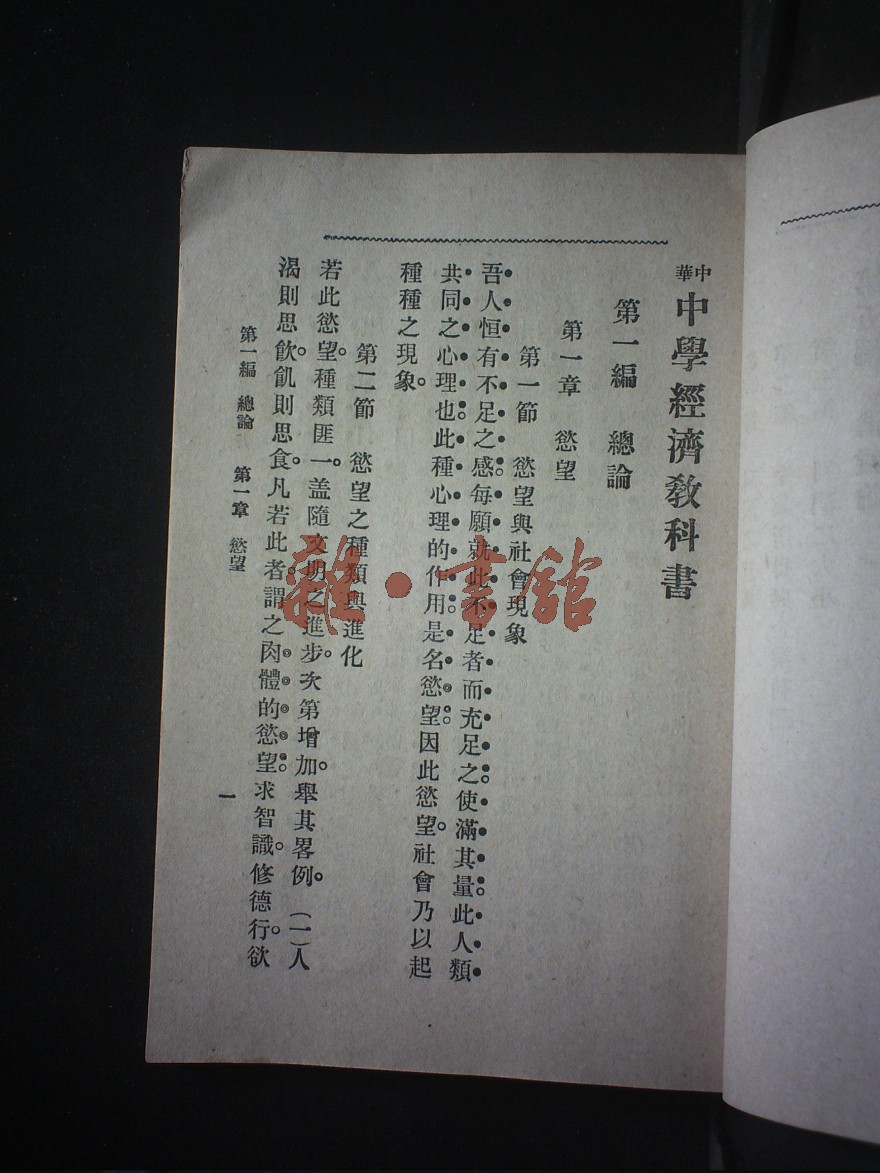 中華 中學經濟教科書
第一編 總論
第一章 慾望
第一節 慾望與社會現象
吾人恒有不足之感。每願就此不足者而充足之。使滿其量。此人類
共同之心理也。此種心理的作用。是名慾望。因此慾望。社會乃以起
種種之現象。
第二節 慾望之種類與進化
若此慾望。種類匪一。蓋隨文明之進步。次第增加。舉其畧例。(一)人
渴則思飲。飢則思食。凡若此者。謂之肉體的慾望。求智識。修德行。欲
第一編 總論 第一章 慾望
一
雜·書館